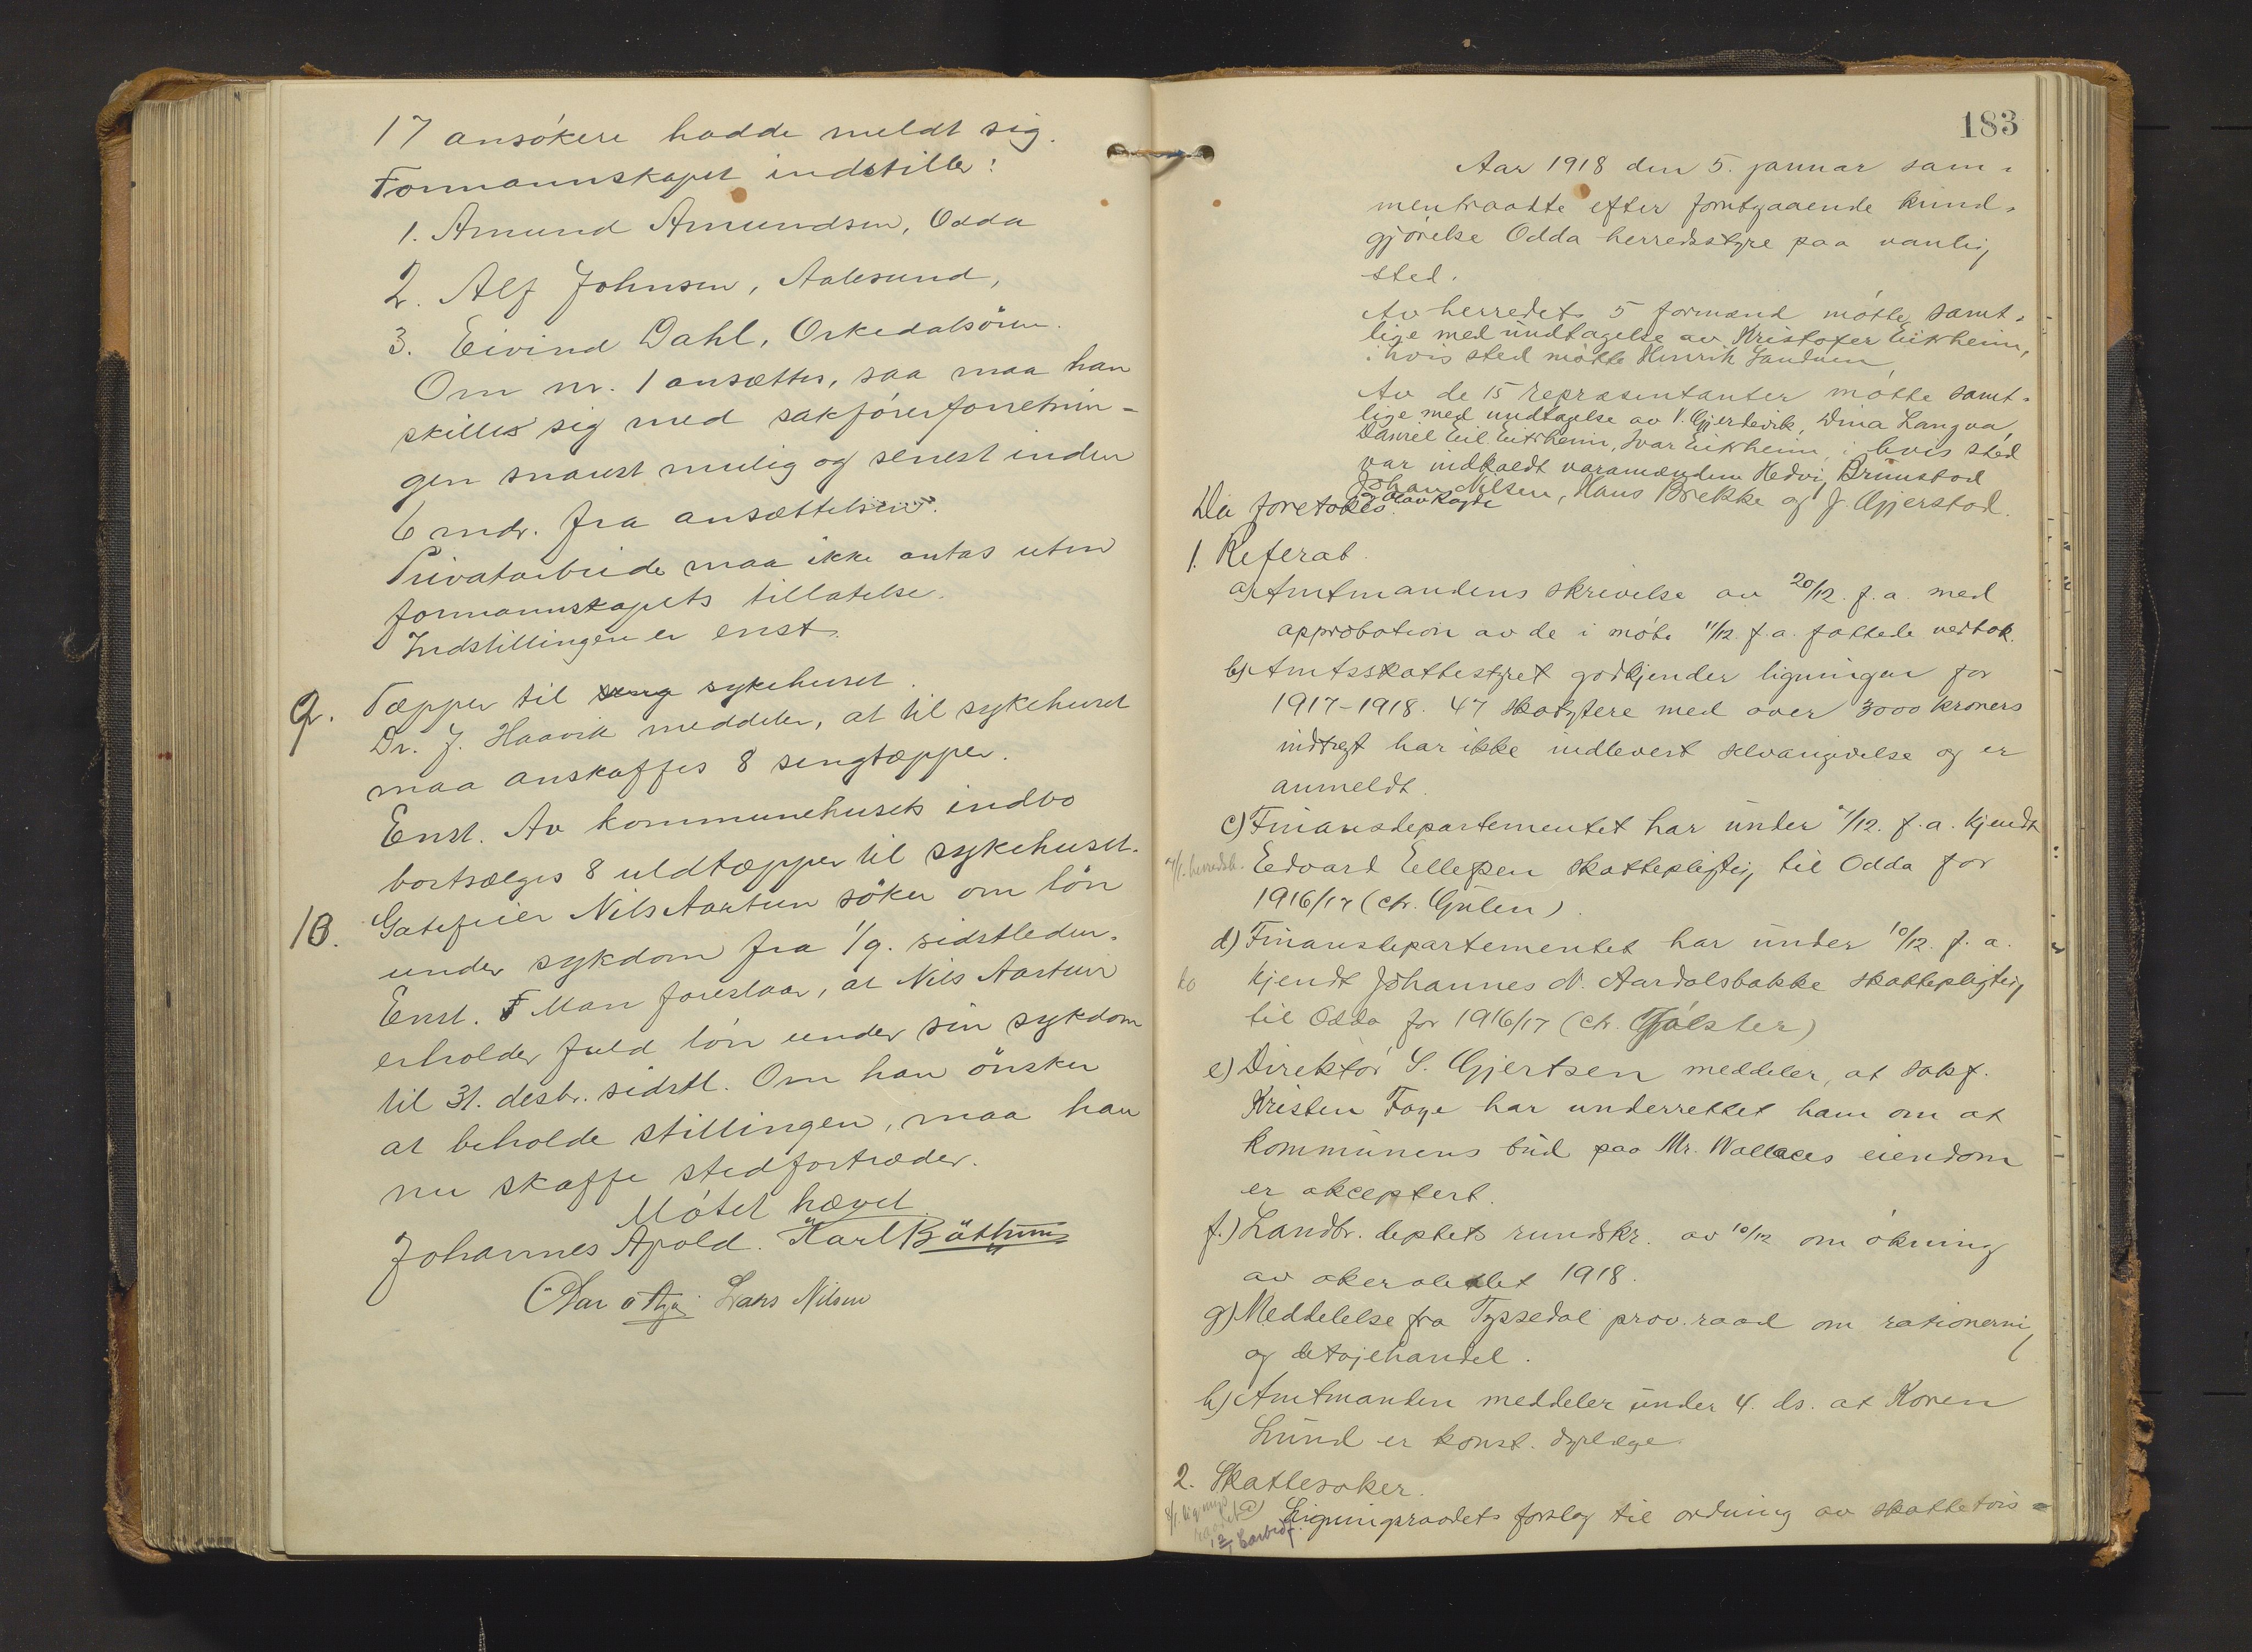 17 ansökere hadde meldt sig.
Formannskapet indstiller:
1. Amund Amundsen, Odda
2. Alf Johnsen, Aalesund,
3. Eivind Dahl, Orkedalsören.
Om nr. 1 ansættes, saa maa han
skilles sig med sakförerforretnin-
gen snarest mulig og senest inden
6 mdr. fra ansættelsen.
Privatarbeide maa ikke antas uten
formannskapets tillatelse.
Indstillingen er enst.
9. Tæpper til seng sykehuset.
Dr. J. Haavik meddeler, at til sykehuset
maa anskaffes 8 sengtæpper.
Enst. Av kommunehusets indbo
bortsælges 8 uldtæpper til sykehuset.
10. Gatefeier Nils Aartun söker om lön
under sykdom fra 1/9. sidstleden.
Enst. Man foreslaar, at Nils Aartun
erholder fuld lön under sin sykdom
til 31. desbr. sidstl. Om han önsker
at beholde stillingen, maa han
nu skaffe stedfortræder.
Mötet hævet.
Johannes Apold. Karl Böthun
Lars Nilsen
183
Aar 1918 den 5. januar sam-
mentraadte efter forutgaaende kund-
gjörelse Odda herredsstyre paa vanlig
sted.
Av herredets 5 formænd mötte samt-
lige med undtagelse av Kristofer Eitrheim,
i hvis sted mötte Henrik Sandven,
Av de 15 repræsentanter mötte samt-
lige med undtagelse av V. Gjerdevik, Dina Langva,
Daniel Eil. Eitrheim, Ivar Eitrheim, i hvis sted
var indkaldt varamændene Hedvig Brunstad
Johan Nilsen, Hans Brekke og J. Gjerstad.
og Olav Ragde
Da foretokes.
1. Referat.
a) Amtmandens skrivelse av 20/12. f.a. med
approbation av de i möte 11/12. f.a. fattede vedtak.
b) Amtsskattestyret godkjender ligningen for
1917-1918. 47 skatytere med over 3000 kroners
indtægt har ikke indlevert selvangivelse og er
anmeldt.
c) Finansdepartementet har under 7/12. f.a. kjendt
Edvard Ellefsen skattepligtig til Odda for
1916/17 (ctr. Gulen).
d) Finansdepartementet har under 10/12. f.a.
do
kjendt Johannes N. Aardalsbakke skattepligtig
til Odda for 1916/17 (ctr. Jölster)
e) Direktör S. Gjertsen meddeler, at sakf.
Kristen Faye har underrettet ham om at
kommunens bud paa Mr. Wallaces eiendom
er akceptert.
f.) Landbr. deptets rundskr. av 10/12 om ökning
av akerarealet 1918.
g) Meddelelse fra Tyssedal prov. raad om rationering
og detaljehandel.
h) Amtmanden meddeler under 4. ds. at Koren
Lund er konst. dyrlæge.
2. Skattesaker.
a) Ligningsraadets forslag til ordning av skattetvis-